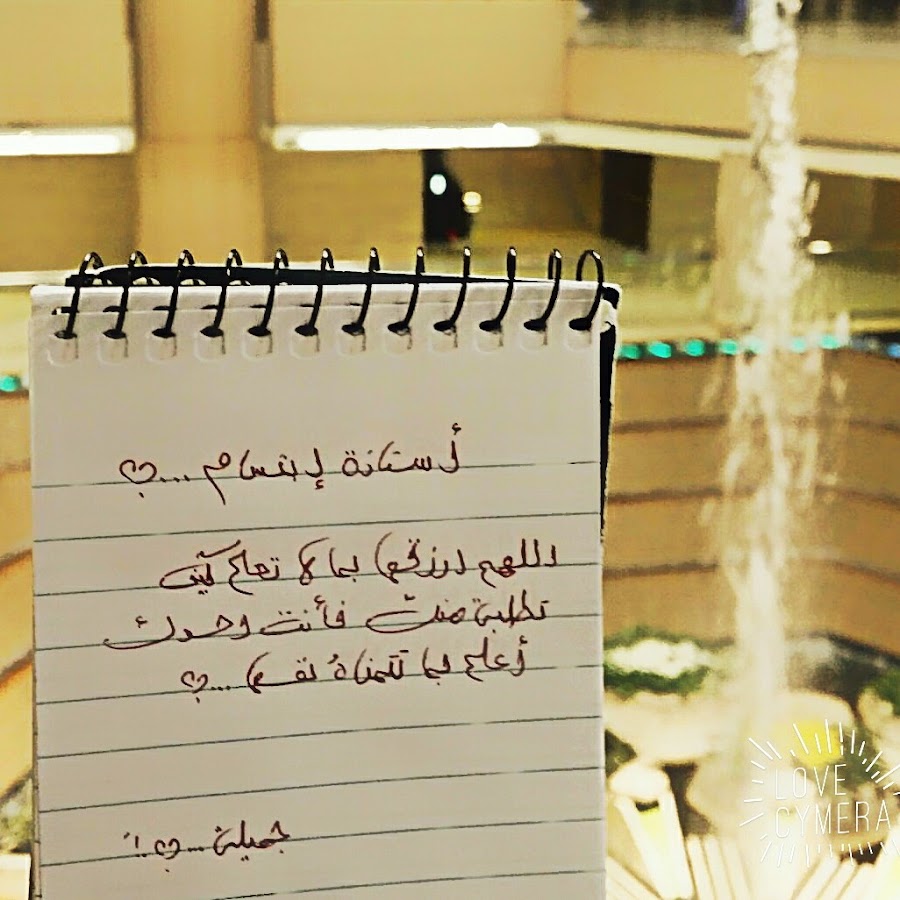 أستاذة إبتسام ...♡
اللهم ارزقها بما لا تعلم كيف
تطلبة منك فأنت وحدك
أعلم بما تتمناهُ نفسها ...♡
جميلة ...♡ !
LOVE
CYMERA